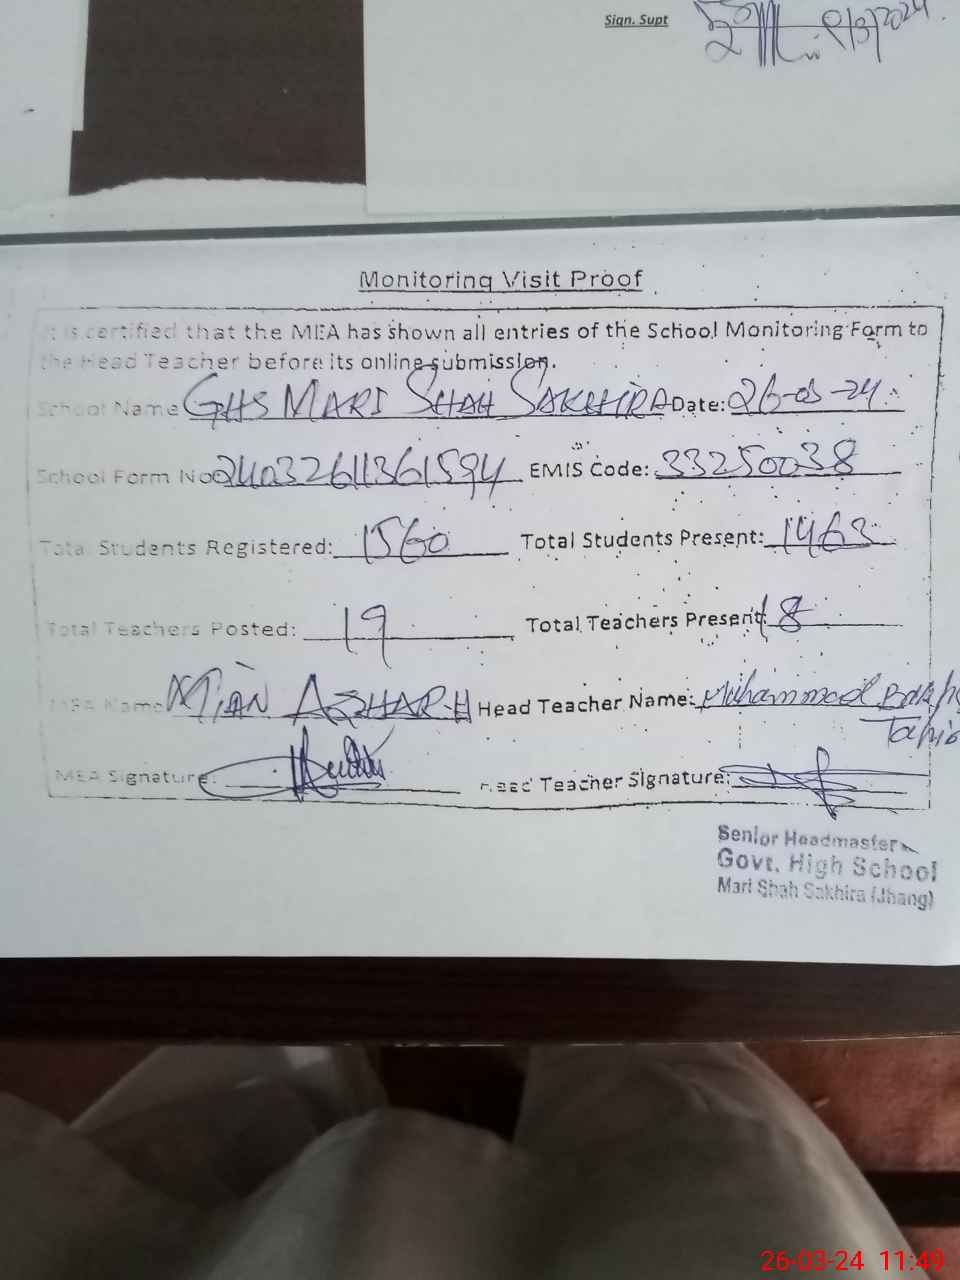 Sign. Supt
Monitoring Visit Proof
It is certified that the MEA has shown all entries of the School Monitoring Form to
the Head Teacher before its online submission.
School Name GHS MARI SHAH SAKHIRA Date: 26-03-24
School Form No 24032611361594 EMIS Code: 33250038
Total Students Registered: 1560 Total Students Present: 1463
Total Teachers Posted: 19 Total Teachers Present: 18
MEA Name MIAN AZHAR-H Head Teacher Name: Muhammad Bakhsh
Tahir
MEA Signature: Head Teacher Signature:
Senior Headmaster
Govt. High School
Mari Shah Sakhira (Jhang)
26-03-24 11:49